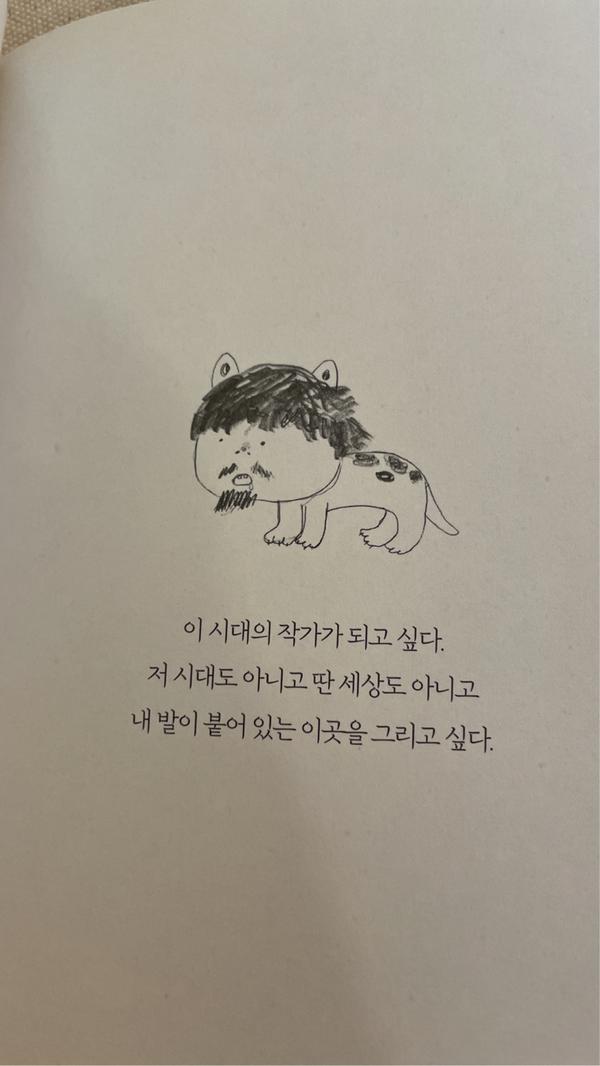 이 시대의 작가가 되고 싶다.
저 시대도 아니고 딴 세상도 아니고
내 발이 붙어 있는 이곳을 그리고 싶다.